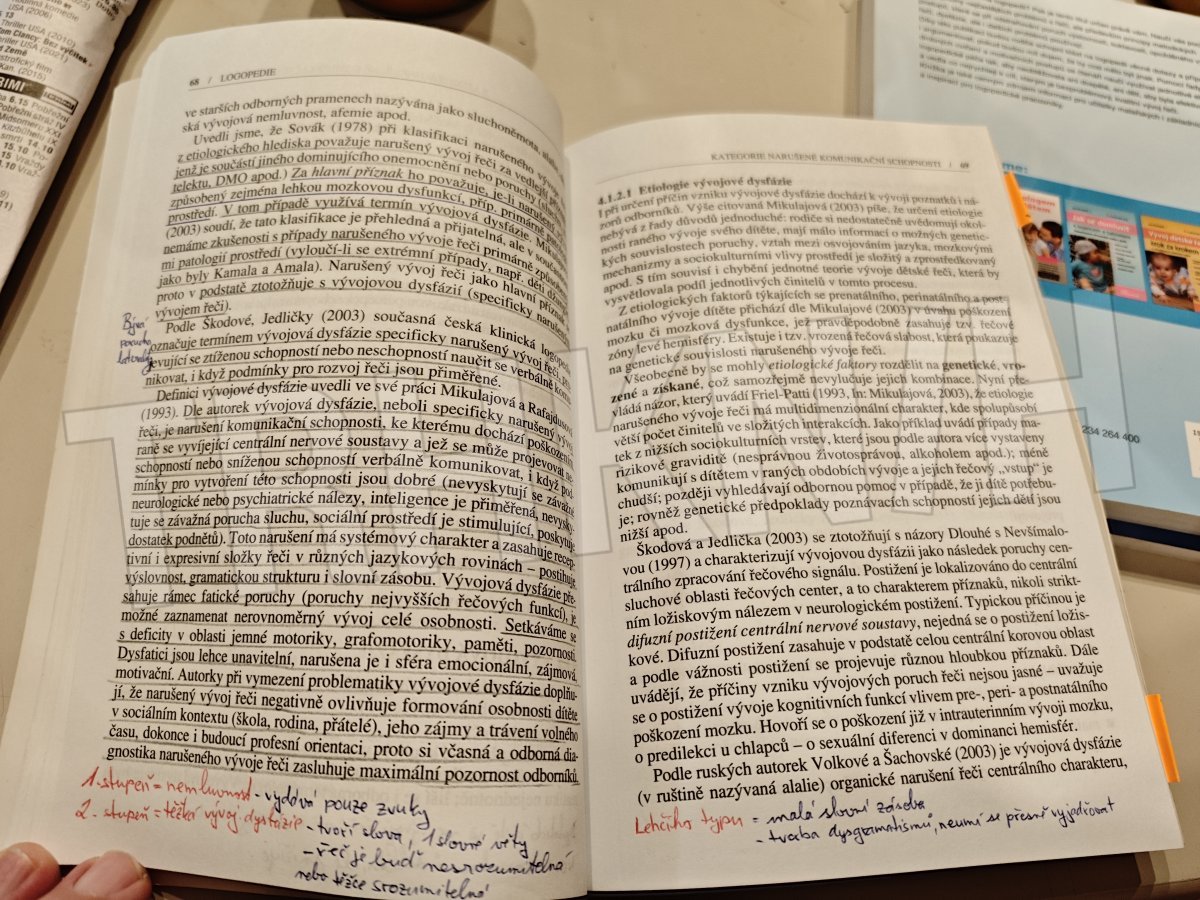 68 / LOGOPEDIE
ve starších odborných pramenech nazývána jako sluchoněmota, alalie,
ská vývojová nemluvnost, afemie apod.
Uvedli jsme, že Sovák (1978) při klasifikaci narušeného vývoje
z etiologického hlediska považuje narušený vývoj řeči za vedlejší
jenž je součástí jiného dominujícího onemocnění nebo poruchy
telektu, DMO apod.) Za hlavní příznak ho považuje, je-li narušený
způsobený zejména lehkou mozkovou dysfunkcí, příp. primárně
prostředí. V tom případě využívá termín vývojová dysfázie.
(2003) soudí, že tato klasifikace je přehledná a přijatelná, ale v současnosti
nemáme zkušenosti s případy narušeného vývoje řeči primárně
mi patologií prostředí (vyloučí-li se extrémní případy, např. dětí
jako byly Kamala a Amala). Narušený vývoj řeči jako hlavní příznak
proto v podstatě ztotožňuje s vývojovou dysfázií (specificky narušeným
vývojem řeči).
Podle Škodové, Jedličky (2003) současná česká klinická logopedie
označuje termínem vývojová dysfázie specificky narušený vývoj řeči,
jevující se ztíženou schopností nebo neschopností naučit se verbálně komu-
nikovat, i když podmínky pro rozvoj řeči jsou přiměřené.
Definici vývojové dysfázie uvedli ve své práci Mikulajová a Rafajdusová
(1993). Dle autorek vývojová dysfázie, neboli specificky narušený vývoj
řeči, je narušení komunikační schopnosti, ke kterému dochází poškozením
raně se vyvíjející centrální nervové soustavy a jež se může projevovat ne-
schopností nebo sníženou schopností verbálně komunikovat, i když pod-
mínky pro vytvoření této schopnosti jsou dobré (nevyskytují se závažné
neurologické nebo psychiatrické nálezy, inteligence je přiměřená, nevysky-
tuje se závažná porucha sluchu, sociální prostředí je stimulující, poskytuje
dostatek podnětů). Toto narušení má systémový charakter a zasahuje recep-
tivní i expresivní složky řeči v různých jazykových rovinách – postihuje
výslovnost, gramatickou strukturu i slovní zásobu. Vývojová dysfázie pře-
sahuje rámec fatické poruchy (poruchy nejvyšších řečových funkcí), je
možné zaznamenat nerovnoměrný vývoj celé osobnosti. Setkáváme se
s deficity v oblasti jemné motoriky, grafomotoriky, paměti, pozornosti.
Dysfatici jsou lehce unavitelní, narušena je i sféra emocionální, zájmová,
motivační. Autorky při vymezení problematiky vývojové dysfázie doplňu-
jí, že narušený vývoj řeči negativně ovlivňuje formování osobnosti dítěte
v sociálním kontextu (škola, rodina, přátelé), jeho zájmy a trávení volného
času, dokonce i budoucí profesní orientaci, proto si včasná a odborná dia-
gnostika narušeného vývoje řeči zasluhuje maximální pozornost odborníků.
1. stupeň = nemluvnost - vydává pouze zvuky
2. stupeň = těžká vývoj. dysfázie - tvoří slova, 1 slovné věty
- řeč je buď nesrozumitelná
nebo těžce srozumitelná
KATEGORIE NARUŠENÉ KOMUNIKAČNÍ SCHOPNOSTI / 69
4.1.2.1 Etiologie vývojové dysfázie
I při určení příčin vzniku vývojové dysfázie dochází k vývoji poznatků i ná-
zorů odborníků. Výše citovaná Mikulajová (2003) píše, že určení etiologie
nebývá z řady důvodů jednoduché: rodiče si nedostatečně uvědomují okol-
nosti raného vývoje svého dítěte, mají málo informací o možných genetic-
kých souvislostech poruchy, vztah mezi osvojováním jazyka, mozkovými
mechanizmy a sociokulturními vlivy prostředí je složitý a zprostředkovaný
apod. S tím souvisí i chybění jednotné teorie vývoje dětské řeči, která by
vysvětlovala podíl jednotlivých činitelů v tomto procesu.
Z etiologických faktorů týkajících se prenatálního, perinatálního a post-
natálního vývoje dítěte přichází dle Mikulajové (2003) v úvahu poškození
mozku či mozková dysfunkce, jež pravděpodobně zasahuje tzv. řečové
zóny levé hemisféry. Existuje i tzv. vrozená řečová slabost, která poukazuje
na genetické souvislosti narušeného vývoje řeči.
Všeobecně by se mohly etiologické faktory rozdělit na genetické, vro-
zené a získané, což samozřejmě nevylučuje jejich kombinace. Nyní pře-
vládá názor, který uvádí Friel-Patti (1993, In: Mikulajová, 2003), že etiologie
narušeného vývoje řeči má multidimenzionální charakter, kde spolupůsobí
větší počet činitelů ve složitých interakcích. Jako příklad uvádí případy ma-
tek z nižších sociokulturních vrstev, které jsou podle autora více vystaveny
rizikové graviditě (nesprávnou životosprávou, alkoholem apod.); méně
komunikují s dítětem v raných obdobích vývoje a jejich řečový „vstup“ je
chudší; později vyhledávají odbornou pomoc v případě, že ji dítě potřebu-
je; rovněž genetické předpoklady poznávacích schopností jejich dětí jsou
nižší apod.
Škodová a Jedlička (2003) se ztotožňují s názory Dlouhé s Nevšímalo-
vou (1997) a charakterizují vývojovou dysfázii jako následek poruchy cen-
trálního zpracování řečového signálu. Postižení je lokalizováno do centrální
sluchové oblasti řečových center, a to charakterem příznaků, nikoli strikt-
ním ložiskovým nálezem v neurologickém postižení. Typickou příčinou je
difuzní postižení centrální nervové soustavy, nejedná se o postižení ložis-
kové. Difuzní postižení zasahuje v podstatě celou centrální korovou oblast
a podle vážnosti postižení se projevuje různou hloubkou příznaků. Dále
uvádějí, že příčiny vzniku vývojových poruch řeči nejsou jasné – uvažuje
se o postižení vývoje kognitivních funkcí vlivem pre-, peri- a postnatálního
poškození mozku. Hovoří se o poškození již v intrauterinním vývoji mozku,
o predilekci u chlapců – o sexuální diferenci v dominanci hemisfér.
Podle ruských autorek Volkové a Šachovské (2003) je vývojová dysfázie
(v ruštině nazývaná alalie) organické narušení řeči centrálního charakteru,
Lehčího typu = malá slovní zásoba
- tvorba dysgramatismů, neumí se přesně vyjadřovat
234 264 400